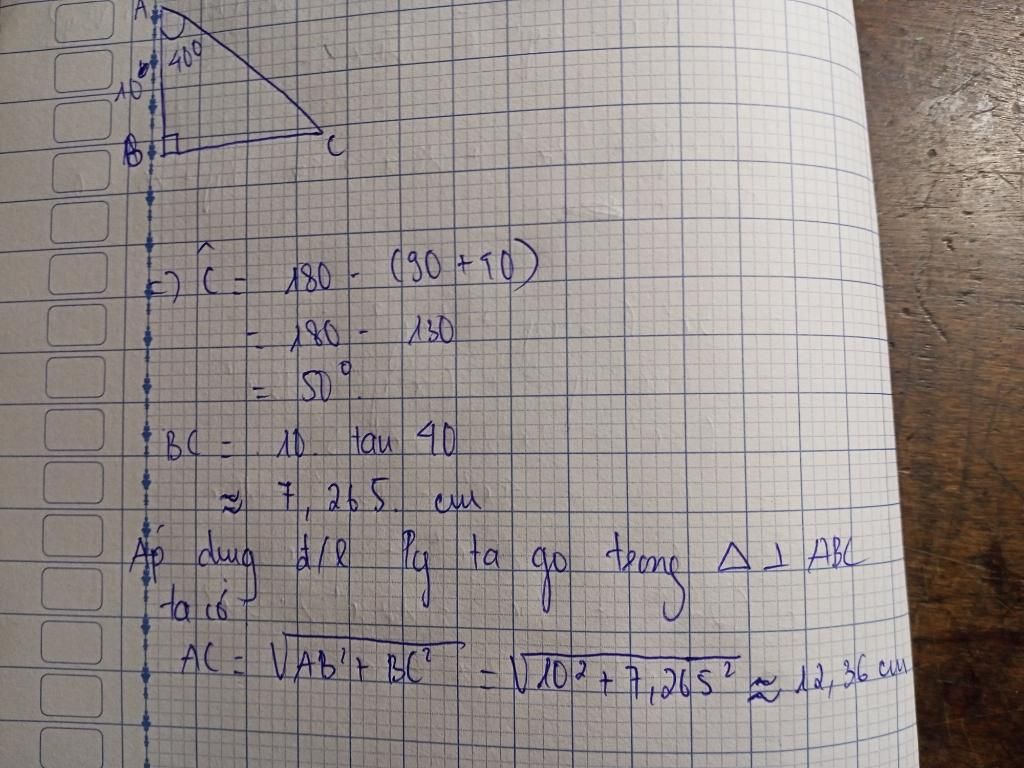 A
40°
10
B
C
=) Ĉ = 180 - (90 + 40)
= 180 - 130
= 50°
BC = 10. tan 40
≈ 7,265. cm
Áp dụng đ/l Py ta go trong Δ ⊥ ABC
ta có
AC = √AB² + BC² = √10² + 7,265² ≈ 12,36 cm